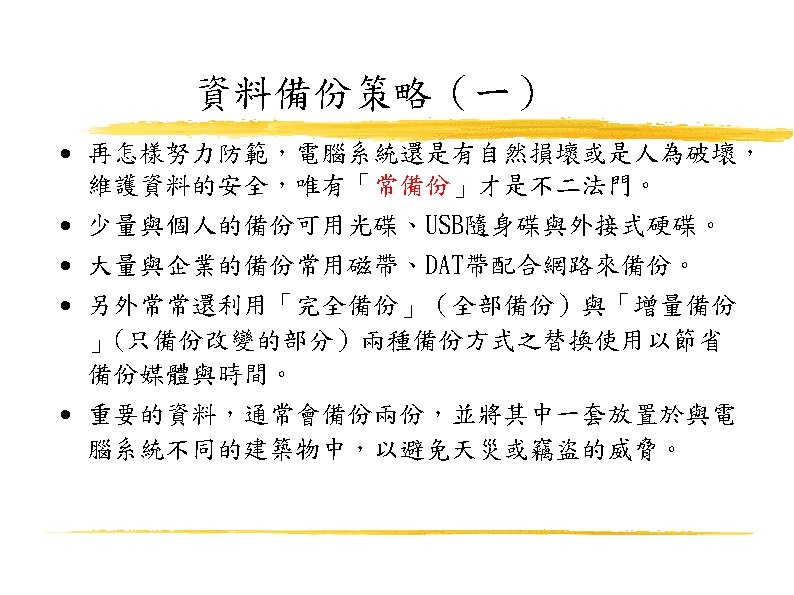 資料備份策略（一）
• 再怎樣努力防範，電腦系統還是有自然損壞或是人為破壞，
維護資料的安全，唯有「常備份」才是不二法門。
• 少量與個人的備份可用光碟、USB隨身碟與外接式硬碟。
• 大量與企業的備份常用磁帶、DAT帶配合網路來備份。
• 另外常常還利用「完全備份」（全部備份）與「增量備份
」(只備份改變的部分）兩種備份方式之替換使用以節省
備份媒體與時間。
• 重要的資料，通常會備份兩份，並將其中一套放置於與電
腦系統不同的建築物中，以避免天災或竊盜的威脅。